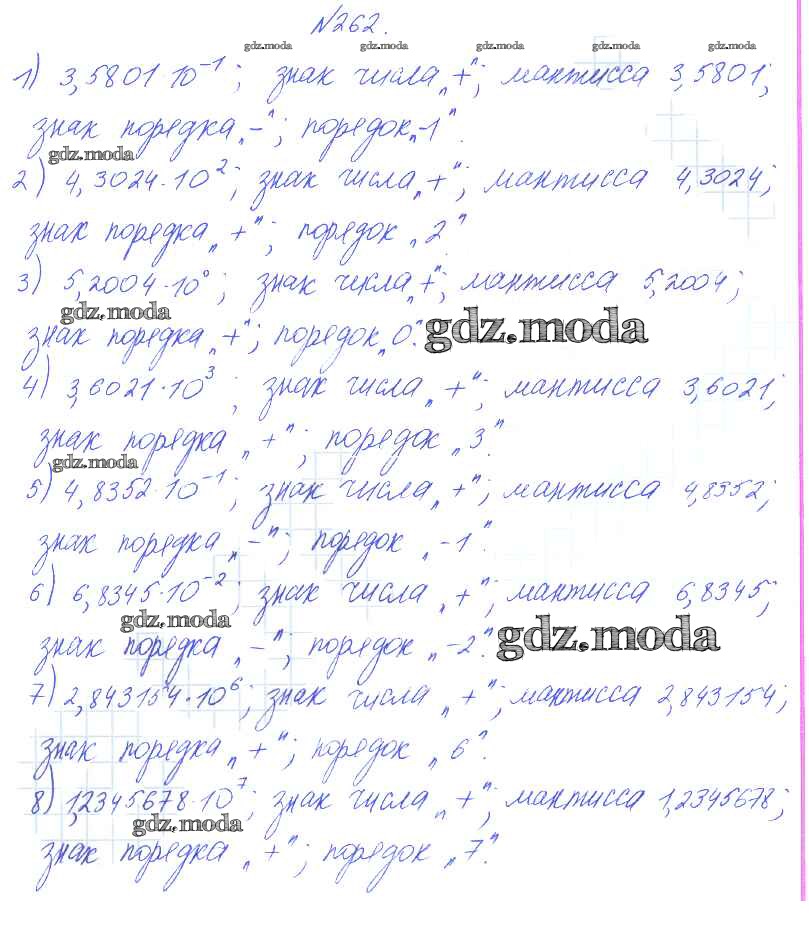 №262.
gdz.moda gdz.moda gdz.moda gdz.moda gdz.moda
1) 3,5801·10⁻¹; знак числа „+"; мантисса 3,5801;
знак порядка „-"; порядок „-1".
gdz.moda
2) 4,3024·10²; знак числа „+"; мантисса 4,3024;
знак порядка „+"; порядок „2"
3) 5,2004·10⁰; знак числа „+"; мантисса 5,2004;
gdz.moda
знак порядка „+"; порядок „0". gdz.moda
4) 3,6021·10³; знак числа „+"; мантисса 3,6021;
знак порядка „+"; порядок „3".
gdz.moda
5) 4,8352·10⁻¹; знак числа „+"; мантисса 4,8352;
знак порядка „-"; порядок „-1".
6) 6,8345·10⁻²; знак числа „+"; мантисса 6,8345;
gdz.moda
знак порядка „-"; порядок „-2". gdz.moda
7) 2,843154·10⁶; знак числа „+"; мантисса 2,843154;
знак порядка „+"; порядок „6".
8) 1,2345678·10⁷; знак числа „+"; мантисса 1,2345678;
gdz.moda
знак порядка „+"; порядок „7".